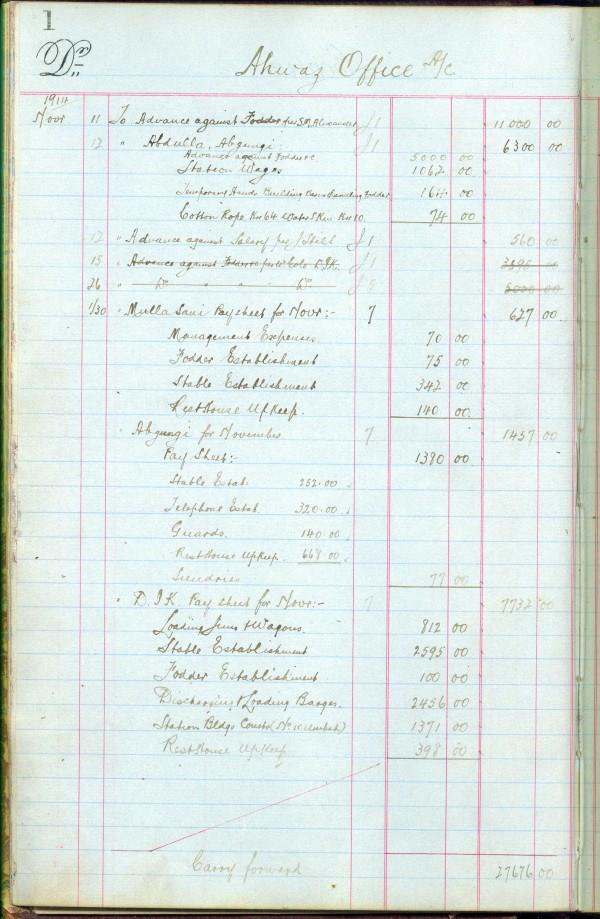 1
Dr. Ahwaz Office A/c
1914
Novr 11 To Advance against Fodder per S.M. Alexander J1 11000 00
12 " Abdulla, Abgungi J1 6300 00
Advance against Fodder 5000 00
Station Wages 1062 00
Temporary Hands Building 164 00
Cotton Rope Krs 64 Krs 10 74 00
12 " Advance against Salary J1 560 00
15 " Advance against Fodder D.I.K. J1 3895 00
26 " Do " " " Do 5000 00
1/30 " Mulla Sani Paysheet for Novr:- 7 627 00
Management Expenses 70 00
Fodder Establishment 75 00
Stable Establishment 342 00
Rest House Upkeep. 140 00
Abgungi for November 7 1457 00
Pay Sheet:- 1380 00
Stable Estab. 252.00
Telephone Estab. 320.00
Guards. 140.00
Rest House Upkeep. 668 00
Sundries 77 00
" D.I.K Pay sheet for Novr:- 7 7732 00
Loading Jims & Wagons. 812 00
Stable Establishment 2595 00
Fodder Establishment 100 00
Discharging & Loading Barges. 2456 00
Station Bldgs Constr 1371 00
Rest House Upkeep 398 00
Carry forward 27676 00